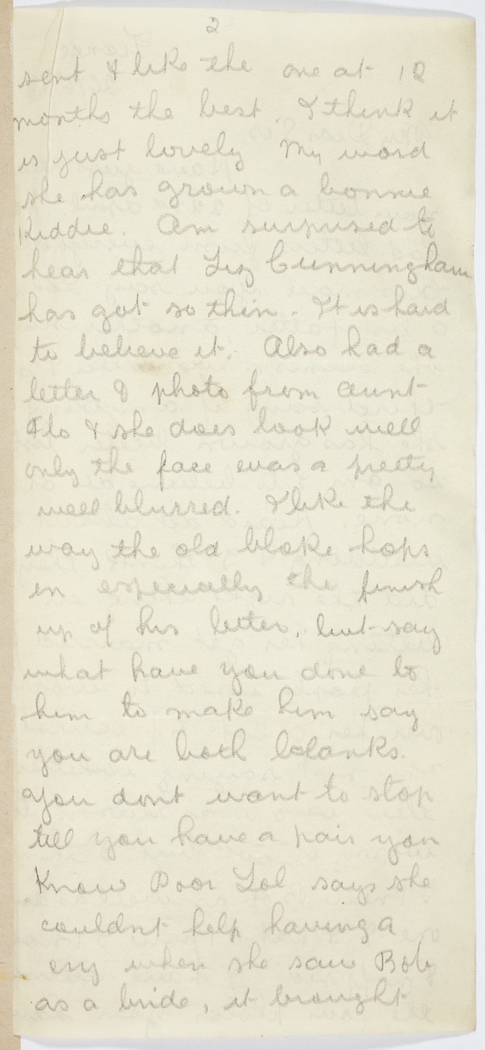 2
sent & like the one at 12
months the best. I think it
is just lovely My word
she has grown a bonnie
Kiddie. Am surprised to
hear that Liz Cunningham
has got so thin. It is hard
to believe it. Also had a
letter & photo from aunt
Flo & she does look well
only the face was a pretty
well blurred. I like the
way the old bloke hops
in especially the finish
up of his letter, but say
what have you done to
him to make him say
you are both blanks.
You dont want to stop
till you have a pair you
Know Poor Lol says she
couldnt help having a
cry when she saw Bob
as a bride, it brought